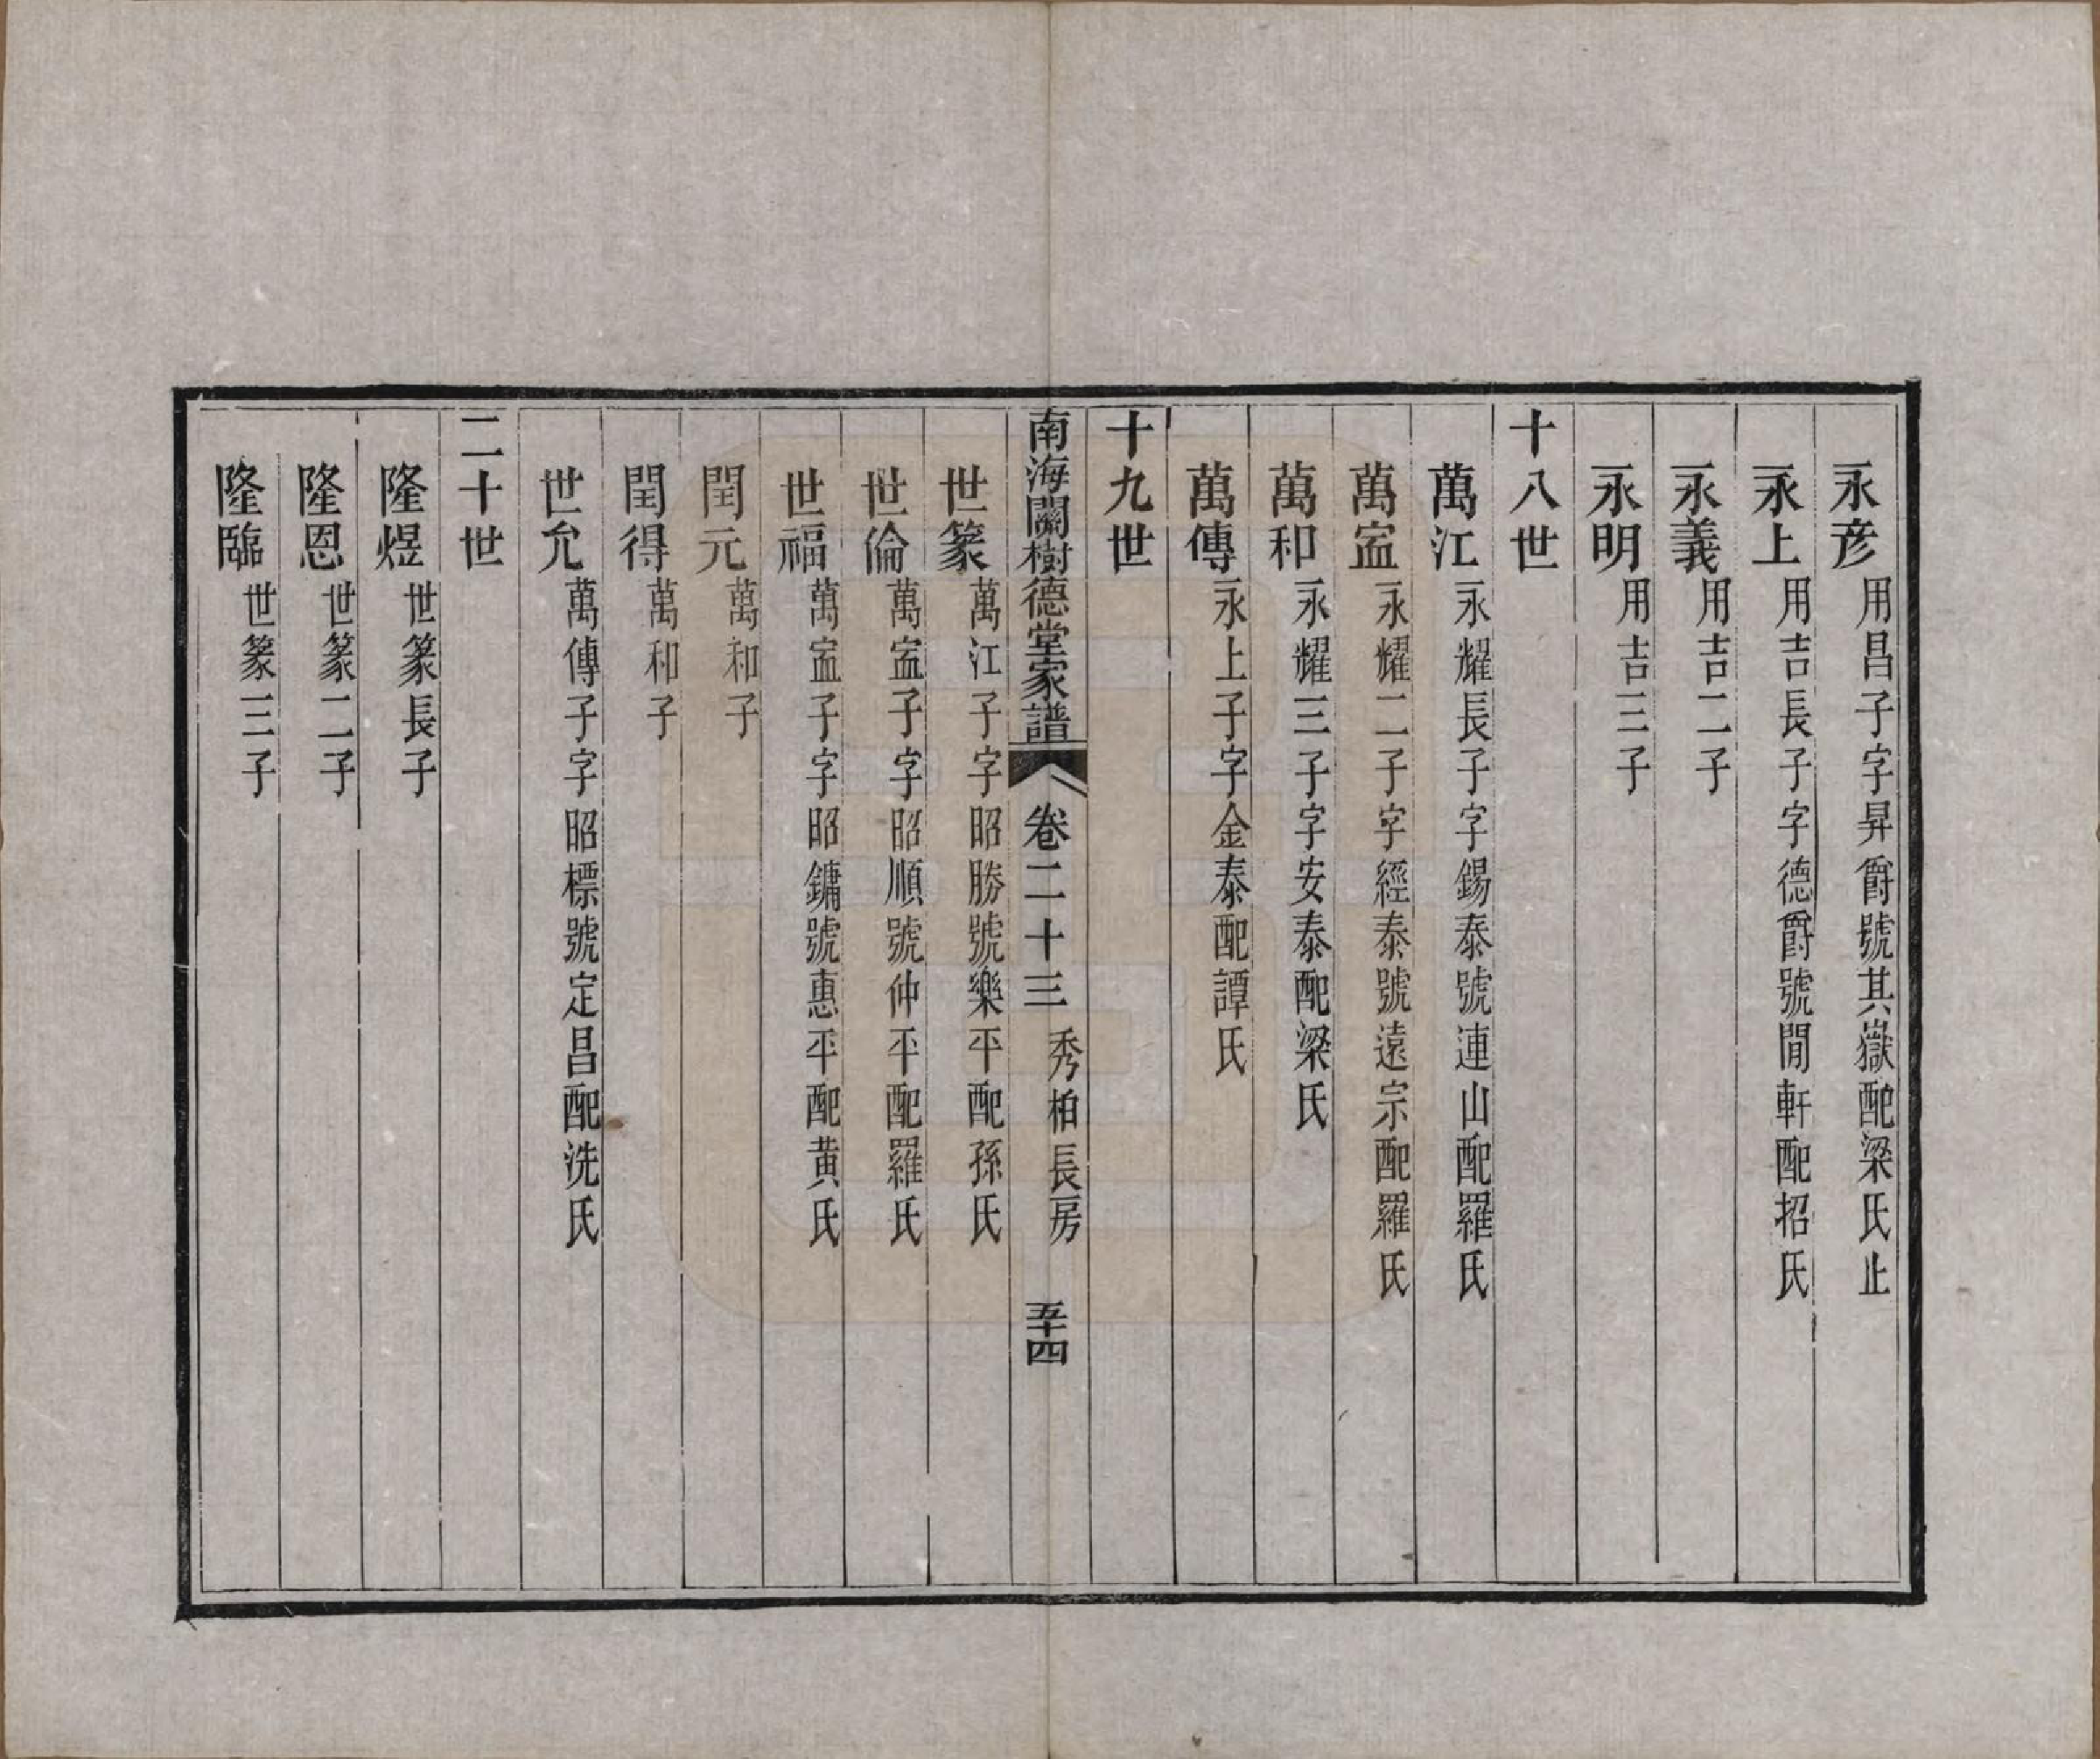 永彥 用昌子字昇爵號其嶽配梁氏止
永上 用吉長子字德爵號閒軒配招氏
永義 用吉二子
永明 用吉三子
十八世
萬江 永耀長子字錫泰號連山配羅氏
萬寍 永耀二子字經泰號遠宗配羅氏
萬和 永耀三子字安泰配梁氏
萬傳 永上子字金泰配譚氏
十九世
南海關樹德堂家譜 卷二十三 秀柏長房 五十四
世篆 萬江子字昭勝號樂平配孫氏
世倫 萬寍子字昭順號仲平配羅氏
世福 萬寍子字昭鏞號惠平配黃氏
閏元 萬和子
閏得 萬和子
世允 萬傳子字昭標號定昌配洗氏
二十世
隆煜 世篆長子
隆恩 世篆二子
隆臨 世篆三子